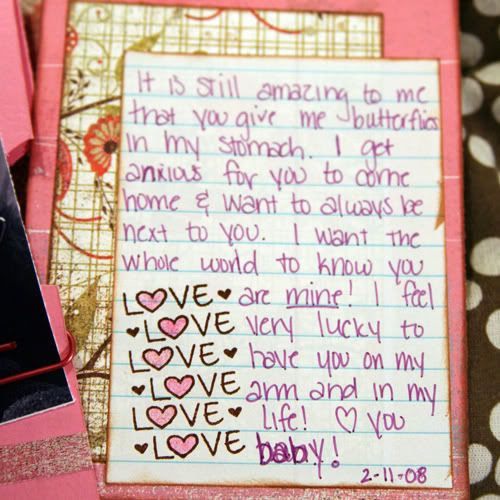 It is still amazing to me
that you give me butterflies
in my stomach. I get
anxious for you to come
home & want to always be
next to you. I want the
whole world to know you
LOVE are mine! I feel
LOVE very lucky to
LOVE have you on my
LOVE arm and in my
LOVE life! ♡ you
LOVE baby!
2-11-08